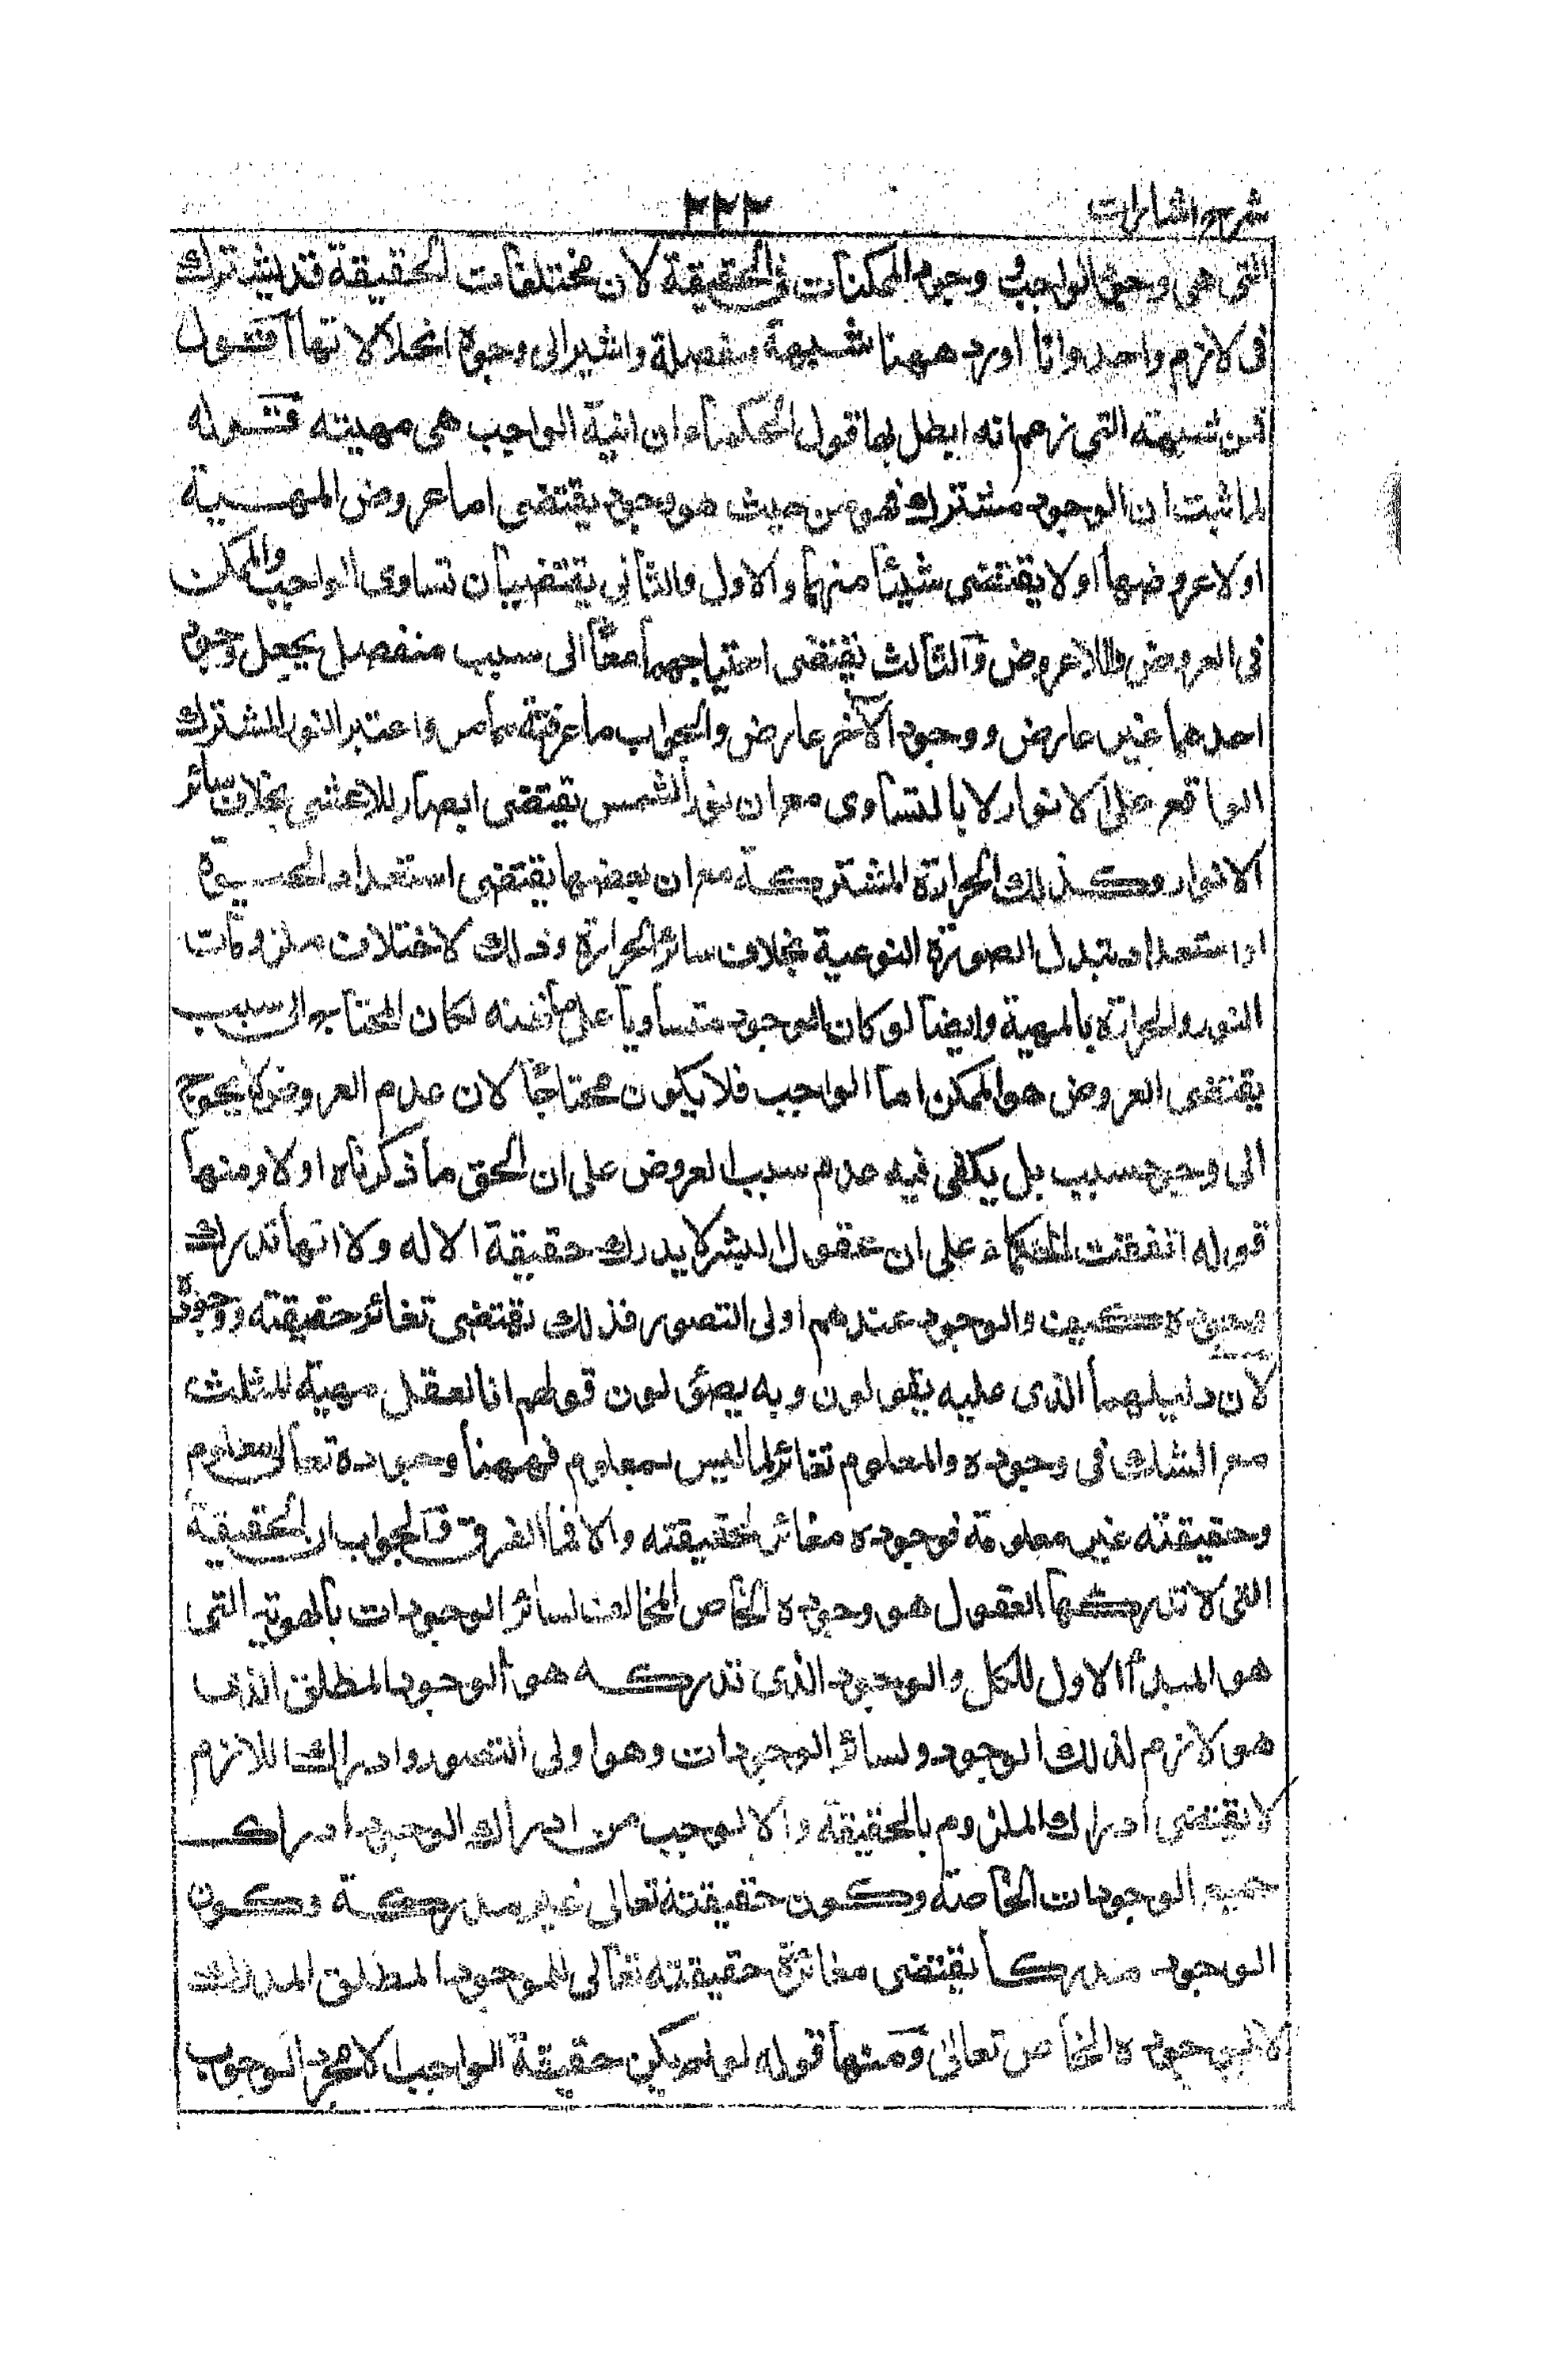 شرح اشارات
٣٢٣
التى هى وجود الواجب وجود الممكنات فى الحقيقة لان مختلفات الحقيقة قد يشترك
فى لازم واحد وانا اورد ههنا شبهة مفصلة واشير الى وجوه انحلالاتها اقول
فمن شبهته التى زعم انه ابطل بها قول الحكماء ان انية الواجب هى مهيته قوله
لما ثبت ان الوجود مشترك فهو من حيث هو وجود يقتضى اما عروض المهية
او لا عروضها او لا يقتضى شيئا منهما والاول والثانى يقتضيان تساوى الواجب والممكن
فى العروض واللاعروض والثالث يقتضى احتياجهما معا الى سبب منفصل يجعل وجود
احدهما غير عارض ووجود الآخر عارض والجواب ما عرفته مما مر واعتبر النور المشترك
الواقع على الانوار لا بالتساوى مع ان نور الشمس يقتضى ابصار للاعشى بخلاف سائر
الانوار وكذلك الحرارة المشتركة مع ان بعضها يقتضى استعداد الحيوة
او استعداد تبدل الصورة النوعية بخلاف سائر الحرارة وذلك لاختلاف ملزومات
النور والحرارة بالمهية وايضا لو كان الوجود متساويا على ظنه لكان المحتاج الى سبب
يقتضى العروض هو الممكن اما الواجب فلا يكون محتاجا لان عدم العروض لا يحوج
الى وجود سبب بل يكفى فيه عدم سبب العروض على ان الحق ما ذكرناه اولا ومنها
قوله اتفقت الحكماء على ان عقول البشر لا يدرك حقيقة الاله ولا انها تدرك
وجوده كيف والوجود عندهم اولى التصور فذلك يقتضى تغائر حقيقته ووجوده
لان دليلهما الذى عليه يقولون وبه يصولون قولهم انا نعقل مهية المثلث
مع الشك فى وجوده والمعلوم تغائر لما ليس بمعلوم فههنا وجوده تعالى معلوم
وحقيقته غير معلومة فوجوده مغائر لحقيقته والا فما الفرق والجواب ان الحقيقة
التى لا تدركها العقول هو وجوده الخاص المخالف لسائر الوجودات بالهوية التى
هو المبدأ الاول للكل والوجود الذى تدركه هو الوجود المطلق الذى
هو لازم لذلك الوجود ولسائر الوجودات وهو اولى التصور وادراك اللازم
لا يقتضى ادراك الملزوم بالحقيقة والا لوجب من ادراك الوجود ادراك
جميع الوجودات الخاصة وكون حقيقته تعالى غير مدركة وكون
الوجود مدركا يقتضى مغائرة حقيقته تعالى للوجود المطلق المدرك
لا لوجوده الخاص تعالى ومنها قوله لو لم يكن حقيقة الواجب الا مجرد الوجود